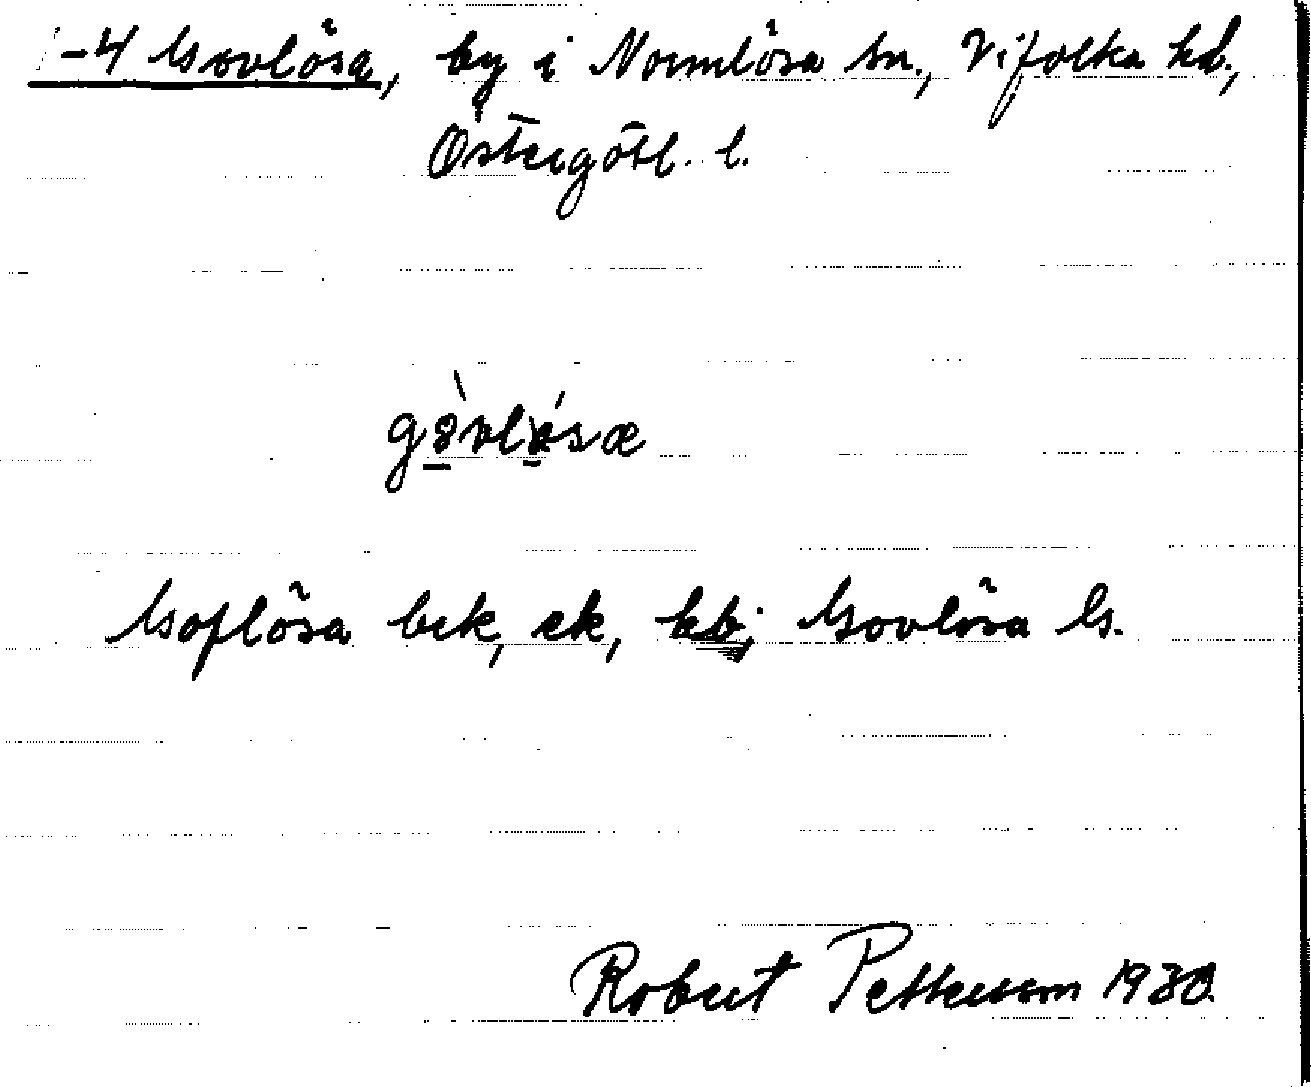 1-4 Govlösa, by i Normlösa sn., Vifolka hd.,
Östergötl. l.
gòvlǿsæ
Goflösa bek, ek, kb; Govlösa Gs.
Robert Petterson 1930.